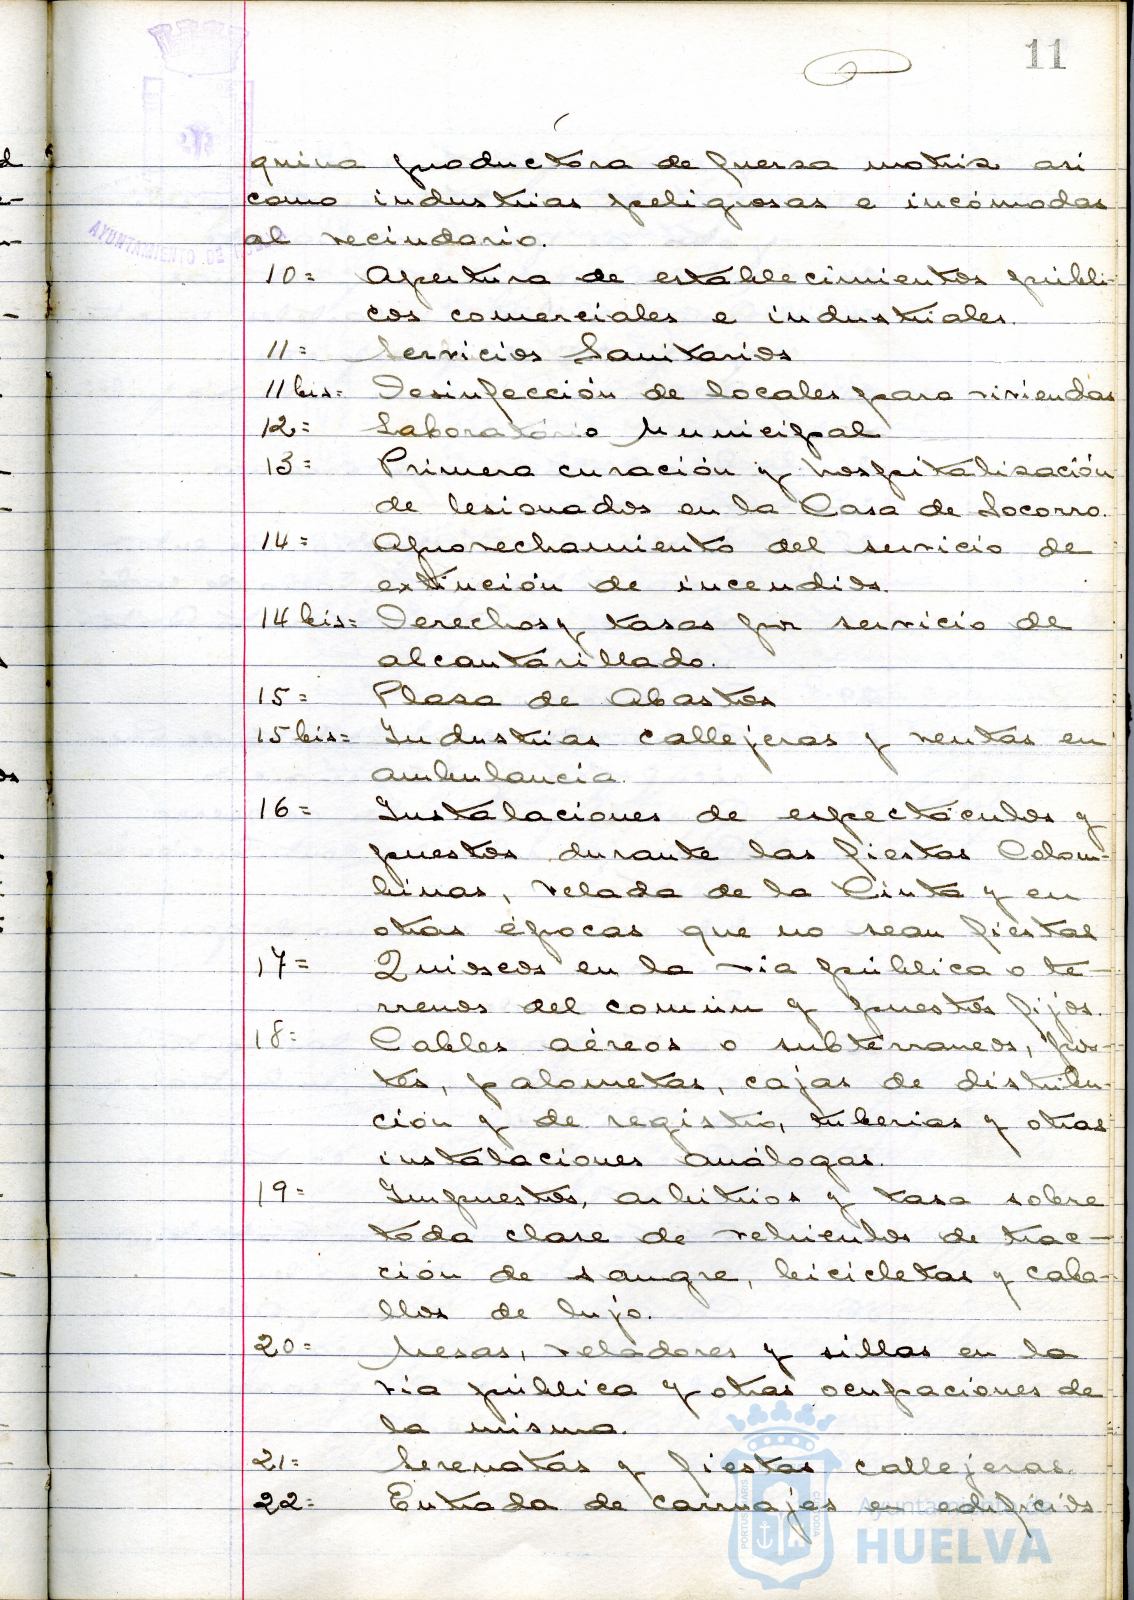 11
quina productora de fuersa motris asi
como industrias peligrosas e incómodas
al vecindario.
AYUNTAMIENTO DE
10= Apertura de establecimientos públi-
cos comerciales e industriales.
11= Servicios Sanitarios
11 bis= Desinfección de locales para viviendas
12= Laboratório Municipal
13= Primera curación y hospitalisación
de lesionados en la Casa de Socorro.
14= Aprovechamiento del servicio de
extinción de incendios.
14 bis= Derechos y tasas por servicio de
alcantarillado.
15= Plasa de Abastos
15 bis= Industrias callejeras y ventas en
ambulancia.
16= Instalaciones de espectáculos y
puestos durante las fiestas Colom-
binas, velada de la Cinta y en
otras épocas que no sean fiestas
17= Quioscos en la via pública o te-
rrenos del común y puestos fijos.
18= Cables aéreos o subterraneos, pos-
tes, palometas, cajas de distribu-
ción y de registro, tuberias y otras
instalaciones análogas.
19= Impuestos, arbitrios y tasa sobre
toda clase de vehiculos de trac-
ción de sangre, bicicletas y caba-
llos de lujo.
20= Mesas, veladores y sillas en la
via pública y otras ocupaciones de
la misma.
21= Serenatas y fiestas callejeras.
22= Entrada de carruajes en edificios
PORTUS MARIS ET TERRAE CUSTODIA
Ayuntamiento de
HUELVA